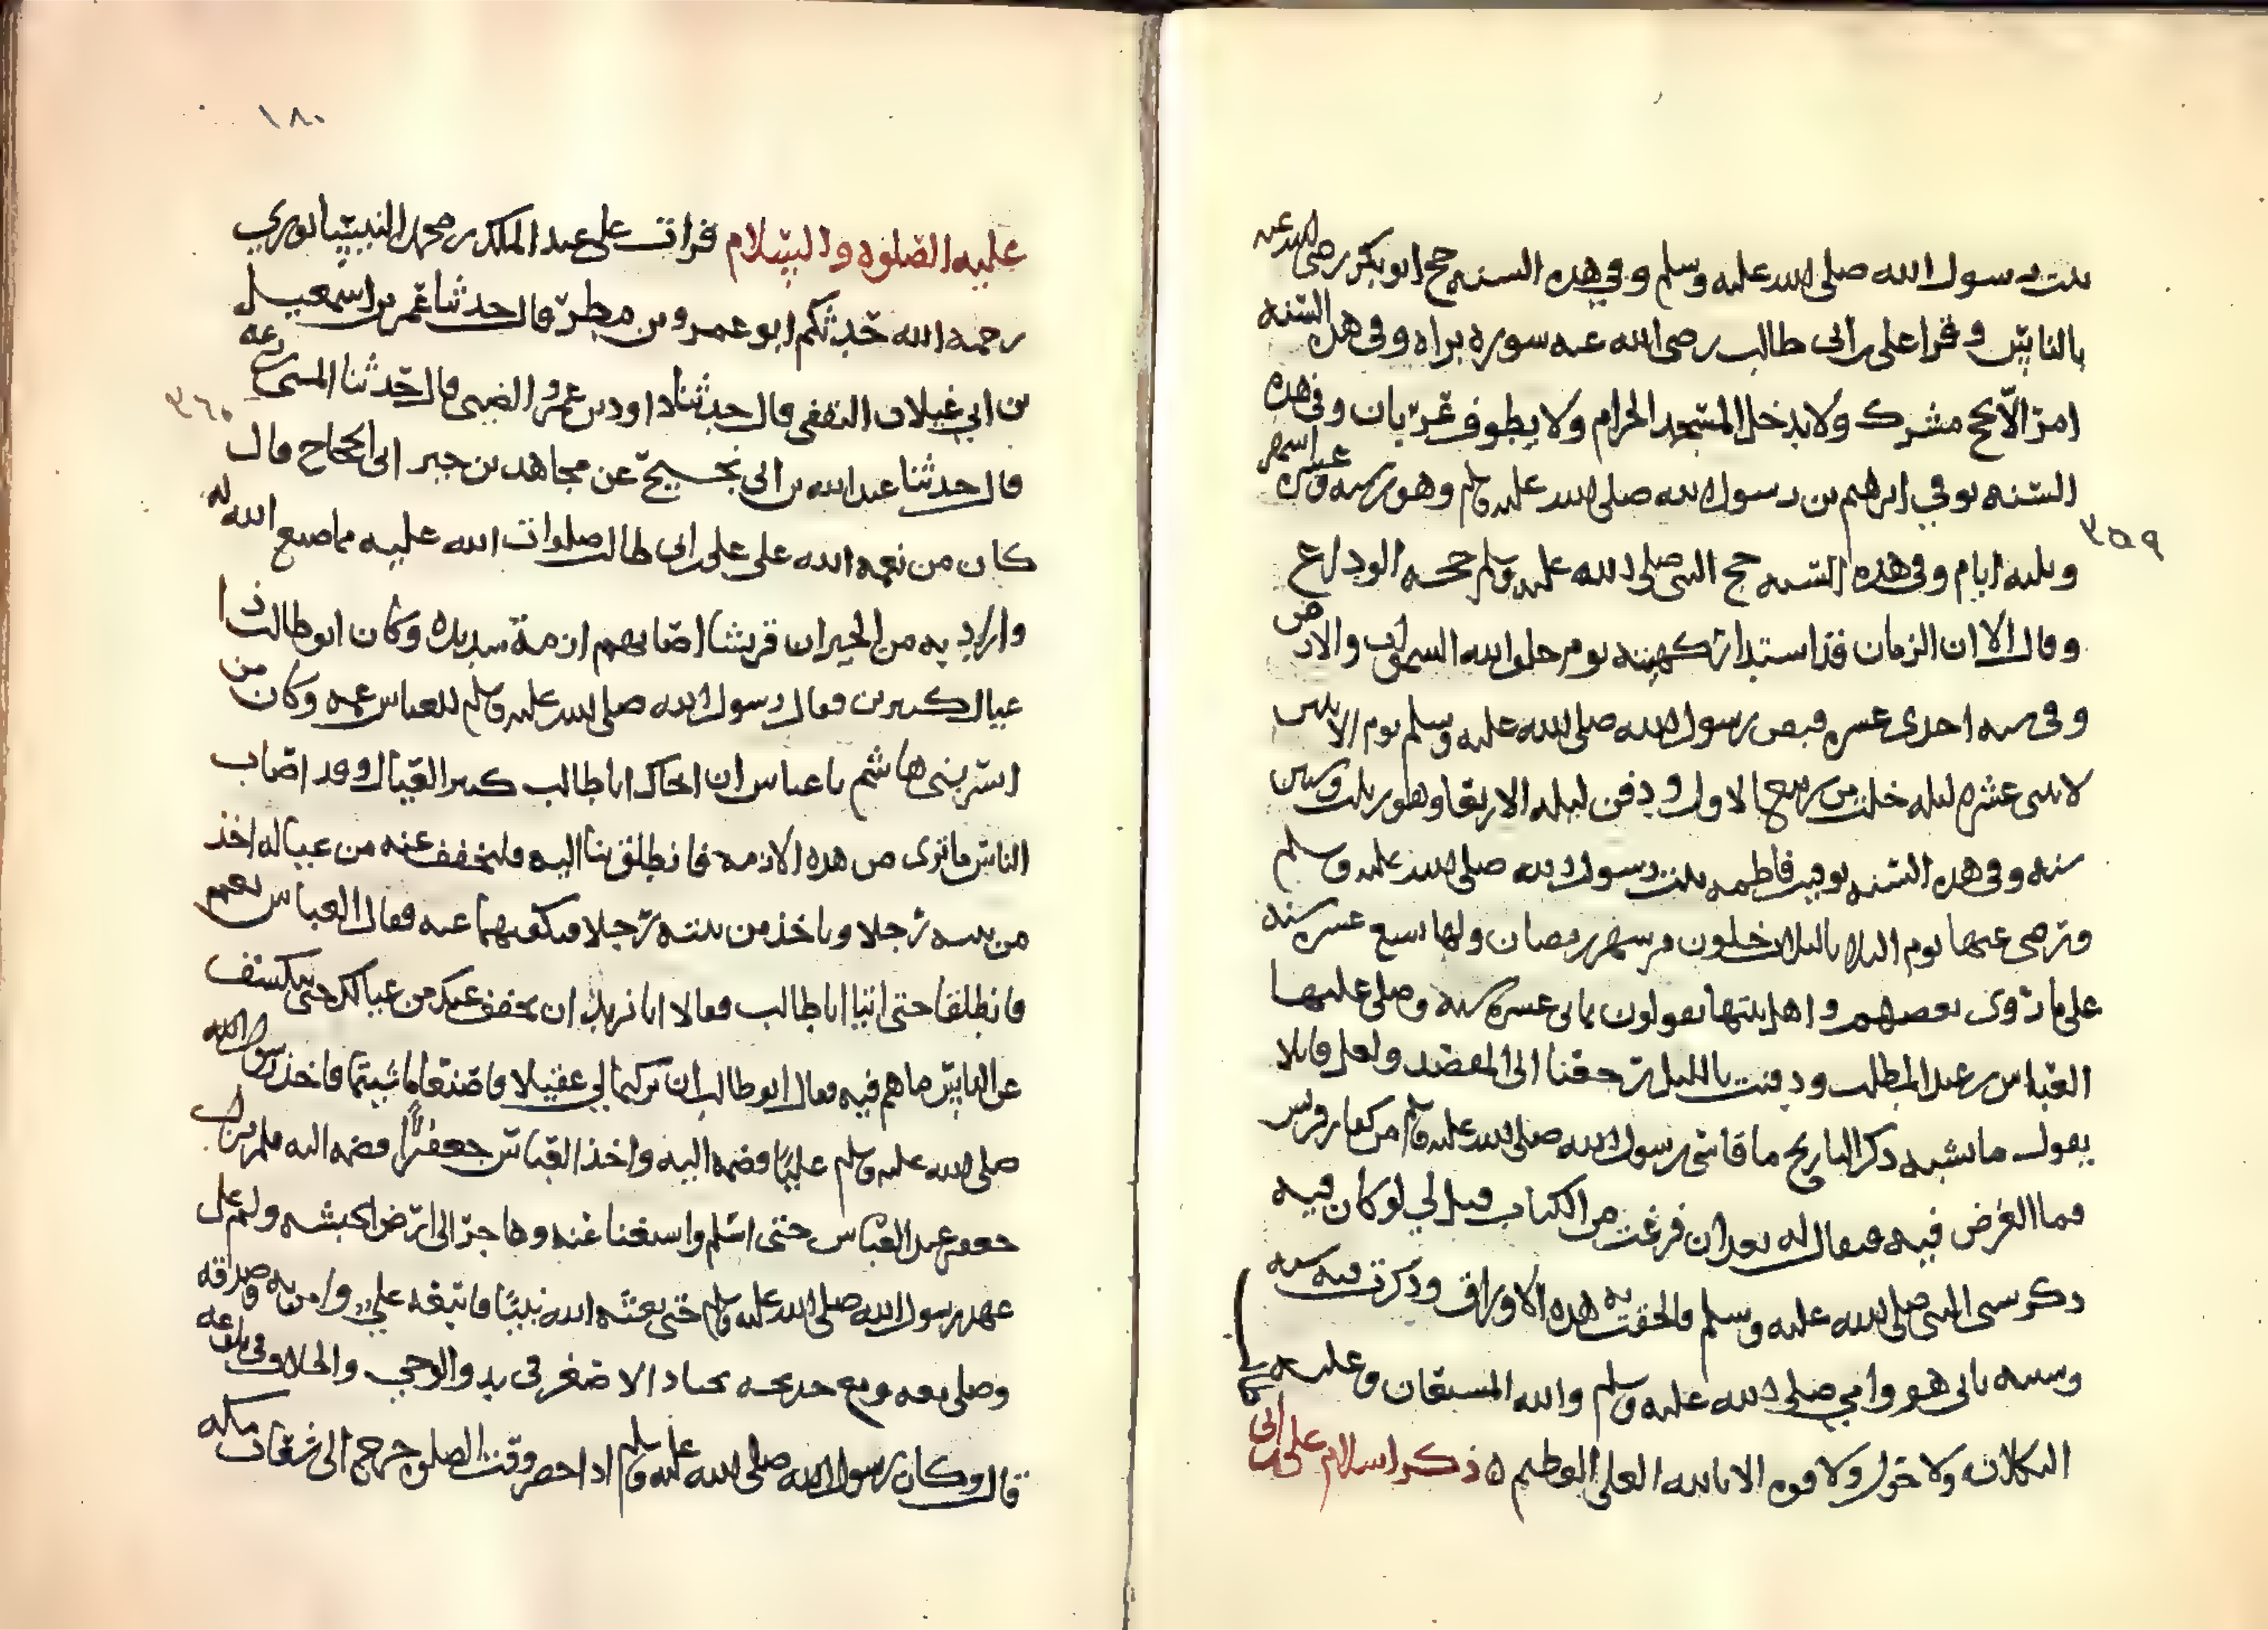 بنت رسول الله صلى الله عليه وسلم وفي هذه السنه حج ابو بكر رضي الله عنه
بالناس وقرا علي بن ابي طالب رضي الله عنه سوره براه وفي هذه السنه
امر الا يحج مشرك ولا يدخل المسجد الحرام ولا يطوف عريان وفي هذه
السنه توفي ابرهيم بن رسول الله صلى الله عليه وسلم وهو بن سنه وعشره اشهر
وثلثه ايام وفي هذه السنه حج النبي صلى الله عليه وسلم حجه الوداع
وقال الا ان الزمان قد استدار كهيئته يوم خلق الله السموات والارض
وفي سنه احدى عشره قبض رسول الله صلى الله عليه وسلم يوم الاثنين
لاثنتي عشره ليله خلت من ربيع الاول ودفن ليله الاربعا وهو بن ثلث وستين
سنه وفي هذه السنه توفيت فاطمه بنت رسول الله صلى الله عليه وسلم
وترضى عنها يوم الثلاثا لثلاث خلون من شهر رمضان ولها تسع عشره سنه
على ما روى بعضهم واهل بيتها يقولون ثماني عشره سنه وصلى عليها
العباس بن عبد المطلب ودفنت بالليل رجعنا الى المقصد ولعل قايلا
يقول ما يشبه ذكر التاريخ ما قاسى رسول الله صلى الله عليه وسلم من كفار قريش
فما الغرض فيه فيقال له بعد ان فرغت من الكتاب قيل لي لو كان فيه
ذكر سني النبي صلى الله عليه وسلم فالحقت به هذه الاوراق وذكرت فيه سنه
وسنه بابي هو وامي صلى الله عليه وسلم والله المستعان وعليه
التكلان ولا حول ولا قوه الا بالله العلي العظيم ٥ ذكر اسلام علي بن ابي
٣٥٩
١٨٠
عليه الصلوه والسلام قرات على عبد الملك بن محمد النيسابوري
رحمه الله حدثكم ابو عمرو بن مطر قال حدثنا عمر بن اسمعيل
بن ابي غيلان الثقفي قال حدثنا داود بن عمرو الضبي قال حدثنا المثنى بن زرعه
قال حدثنا عبد الله بن ابي نجيح عن مجاهد بن جبر ابي الحجاج قال
كان من نعمه الله على علي بن ابي طالب صلوات الله عليه مما صنع الله له
واراد به من الخير ان قريشا اصابهم ازمة شديده وكان ابو طالب ذا
عيال كثيرين فقال رسول الله صلى الله عليه وسلم للعباس عمه وكان من
ايسر بني هاشم يا عباس ان اخاك ابا طالب كثير العيال وقد اصاب
الناس ما ترى من هذه الازمه فانطلق بنا اليه فلنخفف عنه من عياله اخذ
من بنيه رجلا وياخذ من بنيه رجلا فنكفيهما عنه فقال العباس نعم
فانطلقا حتى اتيا ابا طالب فقالا انا نريد ان نخفف عنك من عيالك حتى ينكشف
عن الناس ما هم فيه فقال ابو طالب ان تركتما لي عقيلا فاصنعا ما شيتما فاخذ رسول الله
صلى الله عليه وسلم عليا فضمه اليه واخذ العباس جعفرا فضمه اليه فلم يزل
جعفر عند العباس حتى اسلم واستغنا عنه وهاجر الى ارض الحبشه ولم يزل علي
عند رسول الله صلى الله عليه وسلم حتى بعثه الله نبيا فاتبعه علي وامن به وصدقه
وصلى معه ومع خديجه
قال وكان رسول الله صلى الله عليه وسلم اذا حضر وقت الصلوه خرج الى شعاب مكه
٣٦٠